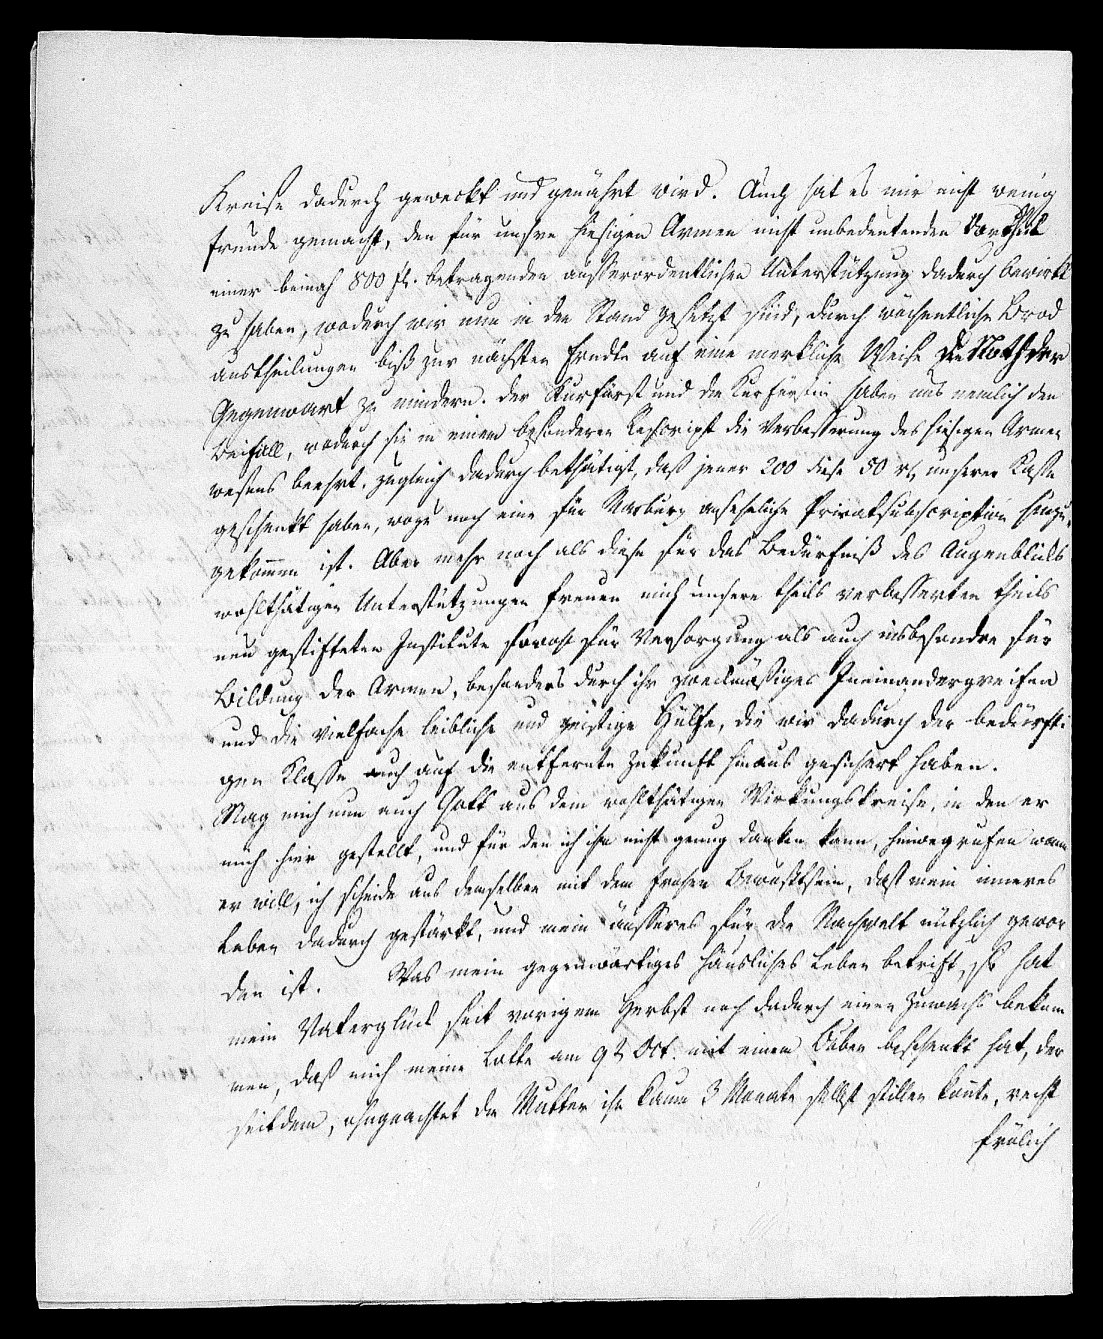 Kreise dadurch geweckt und genährt wird. Auch hat es mir nicht wenig
Freude gemacht, den für unsre hiesigen Armen nicht unbedeutenden Vortheil
einer beinah 800 fl. betragenden äusserordentlichen Unterstützung dadurch bewirkt
zu haben, wodurch wir nun in den Stand gesetzt sind, durch wöchentliche Brod
austheilungen biß zur nächsten Erndte auf eine merkliche Weise die Noth der
Gegenwart zu mindern. Der Kurfürst und die Kurfürstin haben uns nemlich den
Beifall, wodurch sie in einem besonderen Rescript die Verbesserung des hiesigen Armen
wesens beehrt, zugleich dadurch bethätigt, daß jener 200 diese 50 rt. unserer Kasse
geschenkt haben, wozu noch eine für Marburg ansehnliche Privatsubscription hinzu-
gekommen ist. Aber mehr noch als diese für das Bedürfniß des Augenbliks
wohlthätigen Unterstützungen freuen mich unsere theils verbesserten theils
neu gestifteten Institute sowohl für Versorgung als auch insbesondre für
Bildung der Armen, besonders durch ihr zweckmäßiges Ineinandergreifen
und die vielfache leibliche und geistige Hülfe, die wir dadurch der bedürfti
gen Klasse auch auf die entfernte Zukunft hinaus gesichert haben.
Mag mich nun auch Gott aus dem wohlthätigen Wirkungskreise, in den er
mich hier gestellt, und für den ich ihm nicht genug danken kann, hinwegrufen wann
er will, ich scheide aus demselben mit dem frohen Bewußtsein, daß mein inneres
Leben dadurch gestärkt, und mein äusseres für die Nachwelt nützlich gewor
den ist. Was mein gegenwärtiges häusliches Leben betrift, so hat
mein Vaterglück seit vorigem Herbst noch dadurch einen Zuwachs bekom
men, daß mich meine Lotte am 9t Oct. mit einem Buben beschenkt hat, der
seitdem, ohngeachtet die Mutter ihn kaum 3 Monate selbst stillen konte, recht
frölich